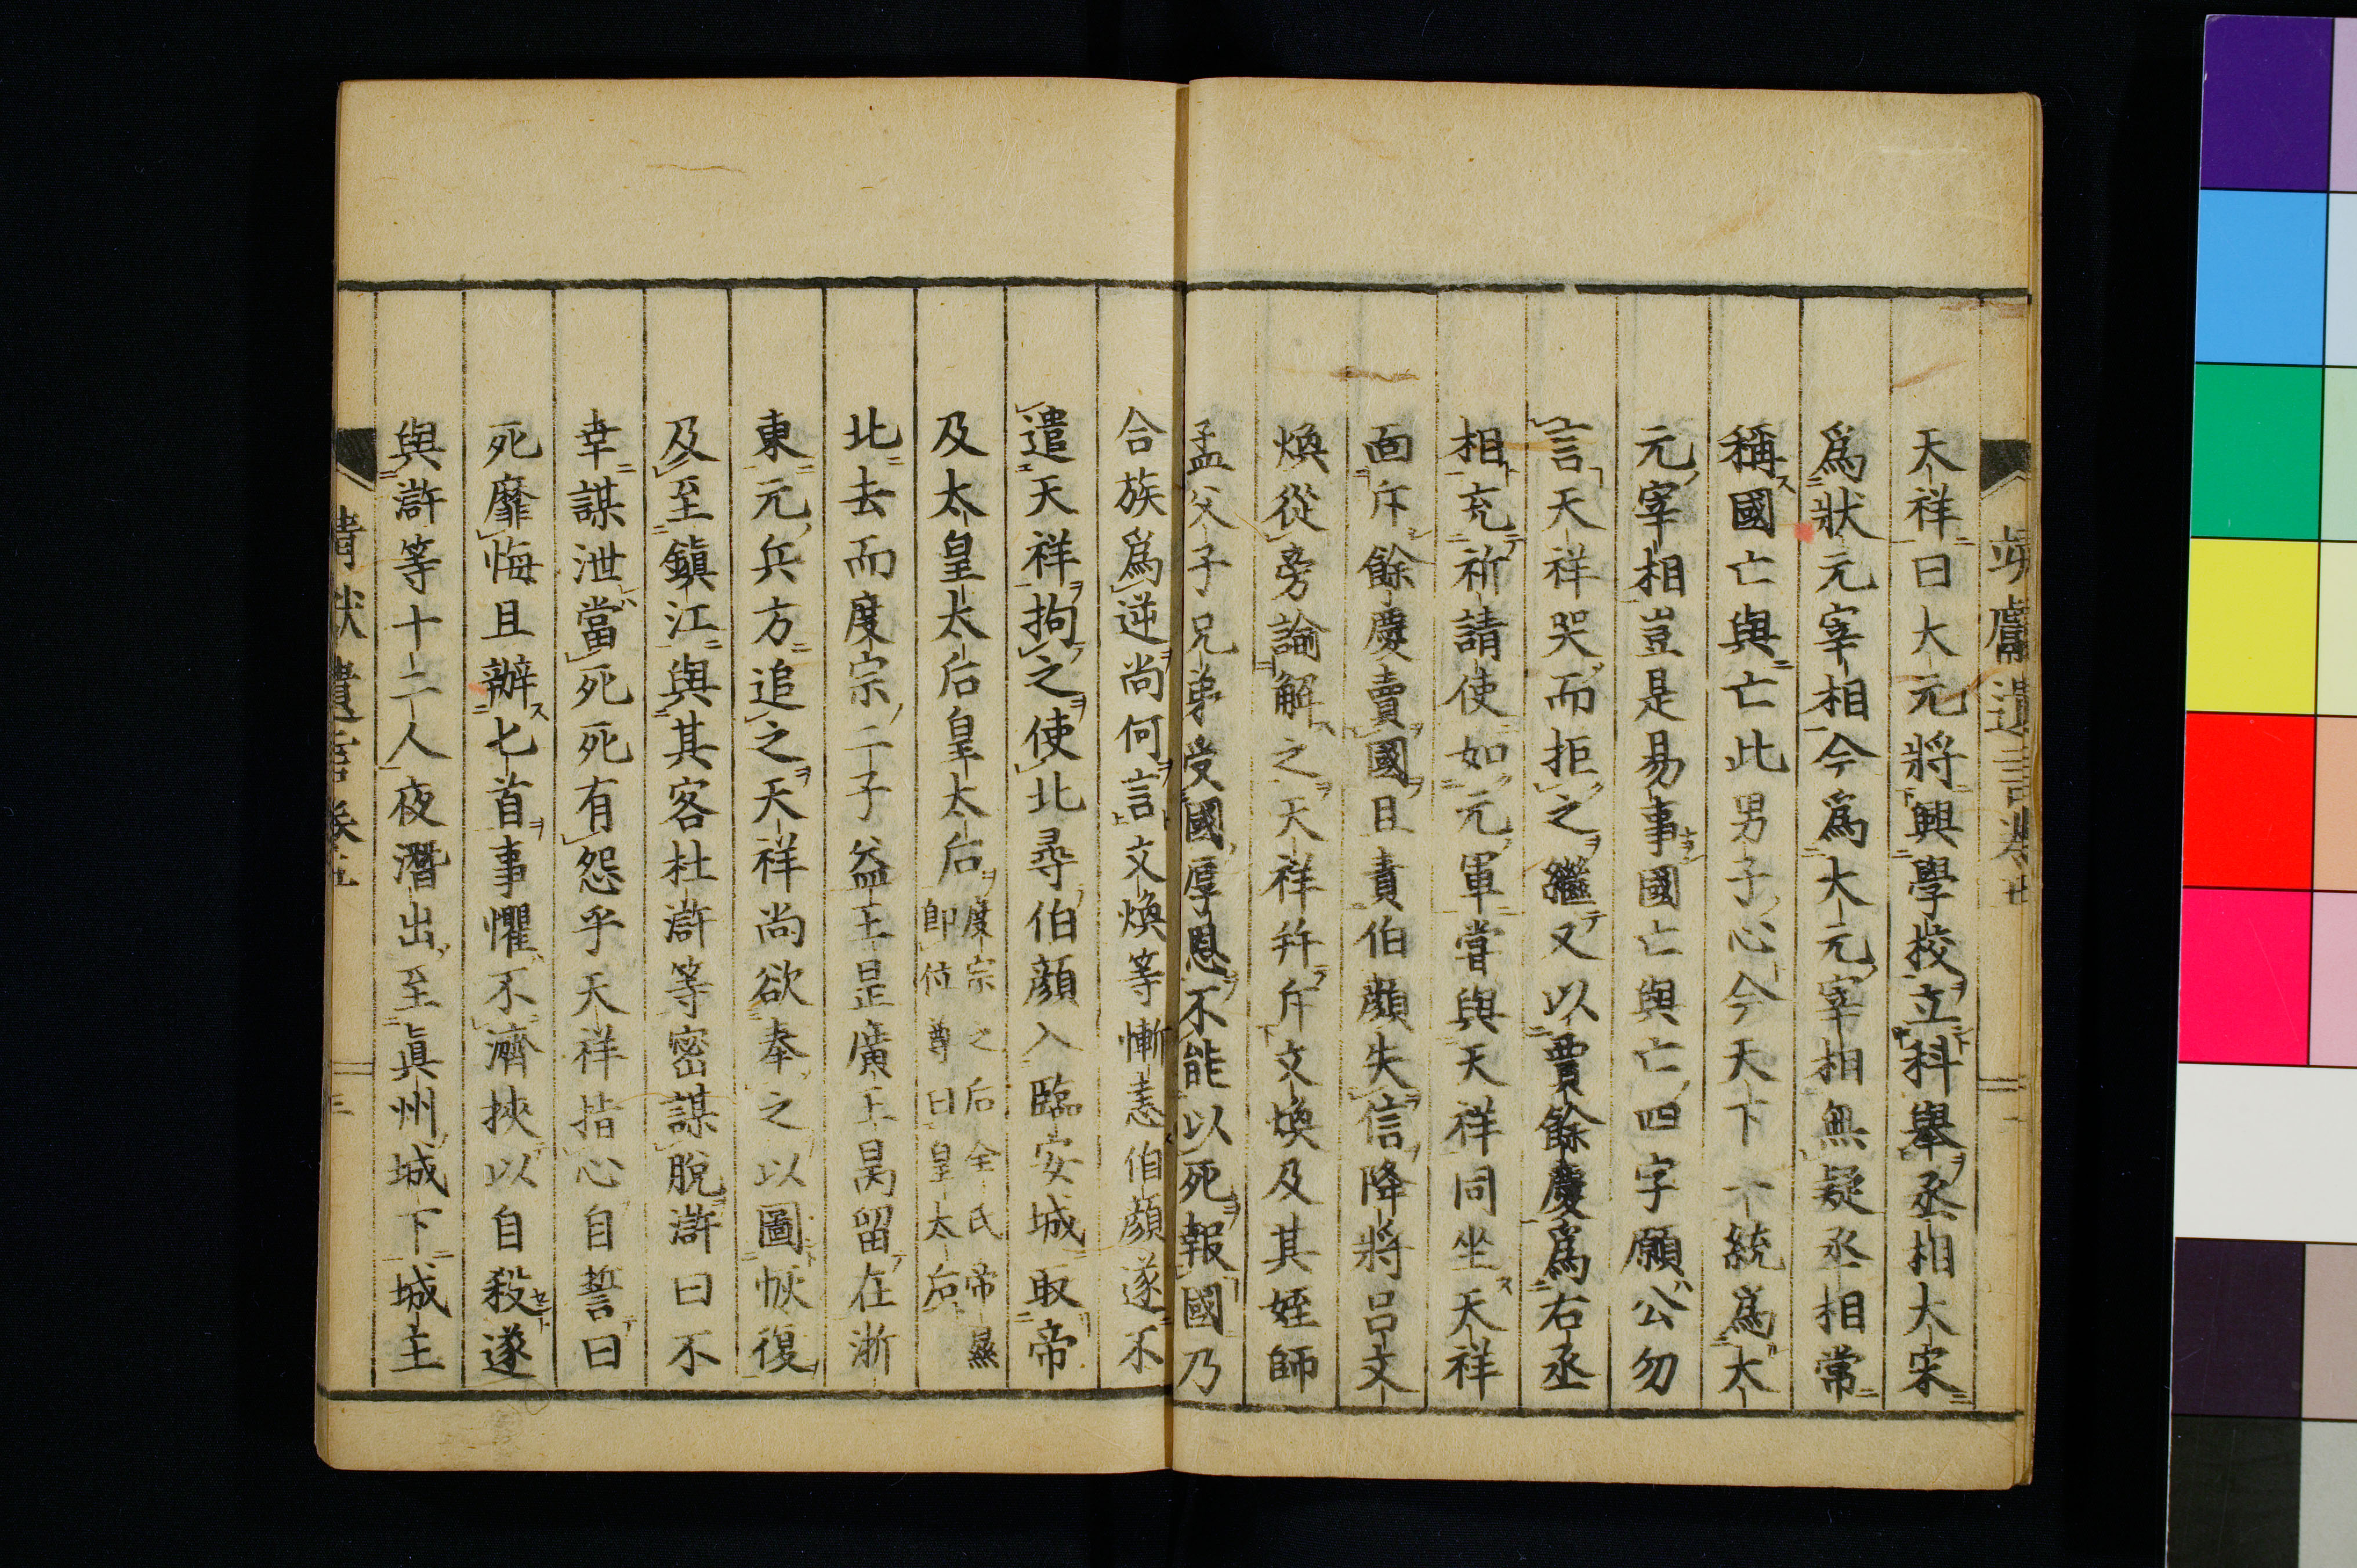 天祥曰大元將興學校立科舉丞相大宋
爲狀元宰相今爲大元宰相無疑丞相常
稱國亡與亡此男子心今天下一統爲大
元宰相豈是易事國亡與亡四字願公勿
言天祥哭而拒之繼又以賈餘慶爲右丞
相充祈請使如元軍嘗與天祥同坐天祥
面斥餘慶賣國且責伯顏失信降將呂文
煥從旁諭解之天祥幷斥文煥及其姪師
孟父子兄弟受國厚恩不能以死報國乃
合族爲逆尚何言文煥等慚恚伯顏遂不
遣天祥拘之使北尋伯顏入臨安城取帝
及太皇太后皇太后度宗之后全氏帝㬎
即位尊曰皇太后
北去而度宗二子益王昰廣王昺留在浙
東元兵方追之天祥尚欲奉之以圖恢復
及至鎭江與其客杜滸等密謀脫滸曰不
幸謀泄當死死有怨乎天祥指心自誓曰
死靡悔且辦匕首事懼不濟挾以自殺遂
與滸等十二人夜潛出至眞州城下城主
靖獻遺言卷五
三